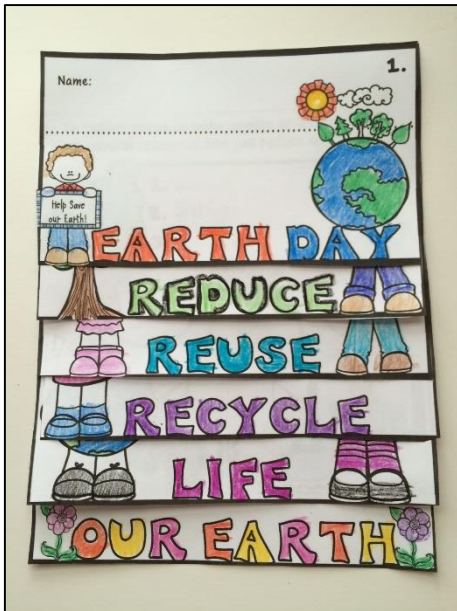 1.
Name:
Help Save
our Earth!
EARTH DAY
REDUCE
REUSE
RECYCLE
LIFE
OUR EARTH